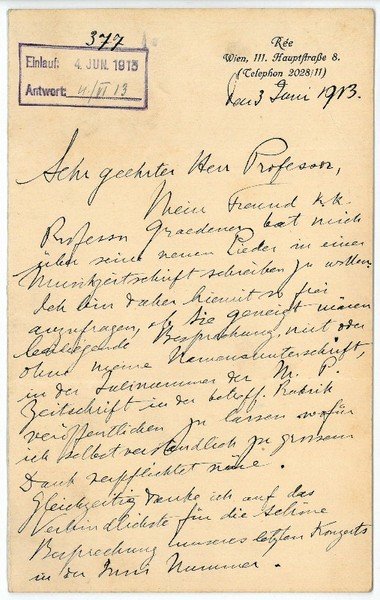 377
Rée
Wien, III. Hauptstraße 8.
(Telephon 2028/11)
Einlauf: 4. JUN. 1913
Antwort: 4/VI 13
den 3 Juni 1913.
Sehr geehrter Herr Professor,
Mein Freund k.k.
Professor Graedener bat mich
über seine neuen Lieder in einer
Musikzeitschrift schreiben zu wollen.
Ich bin daher hiemit so frei
anzufragen, ob Sie geneigt wären
beiliegende Besprechung, mit oder
ohne meine Namensunterschrift,
in der Julinummer der M. P.
Zeitschrift in der betreff. Rubrik
veröffentlichen zu lassen wofür
ich selbstverständlich zu grossem
Dank verpflichtet wäre.
Gleichzeitig danke ich auf das
Verbindlichste für die schöne
Besprechung unseres letzten Konzerts
in der Juni Nummer.